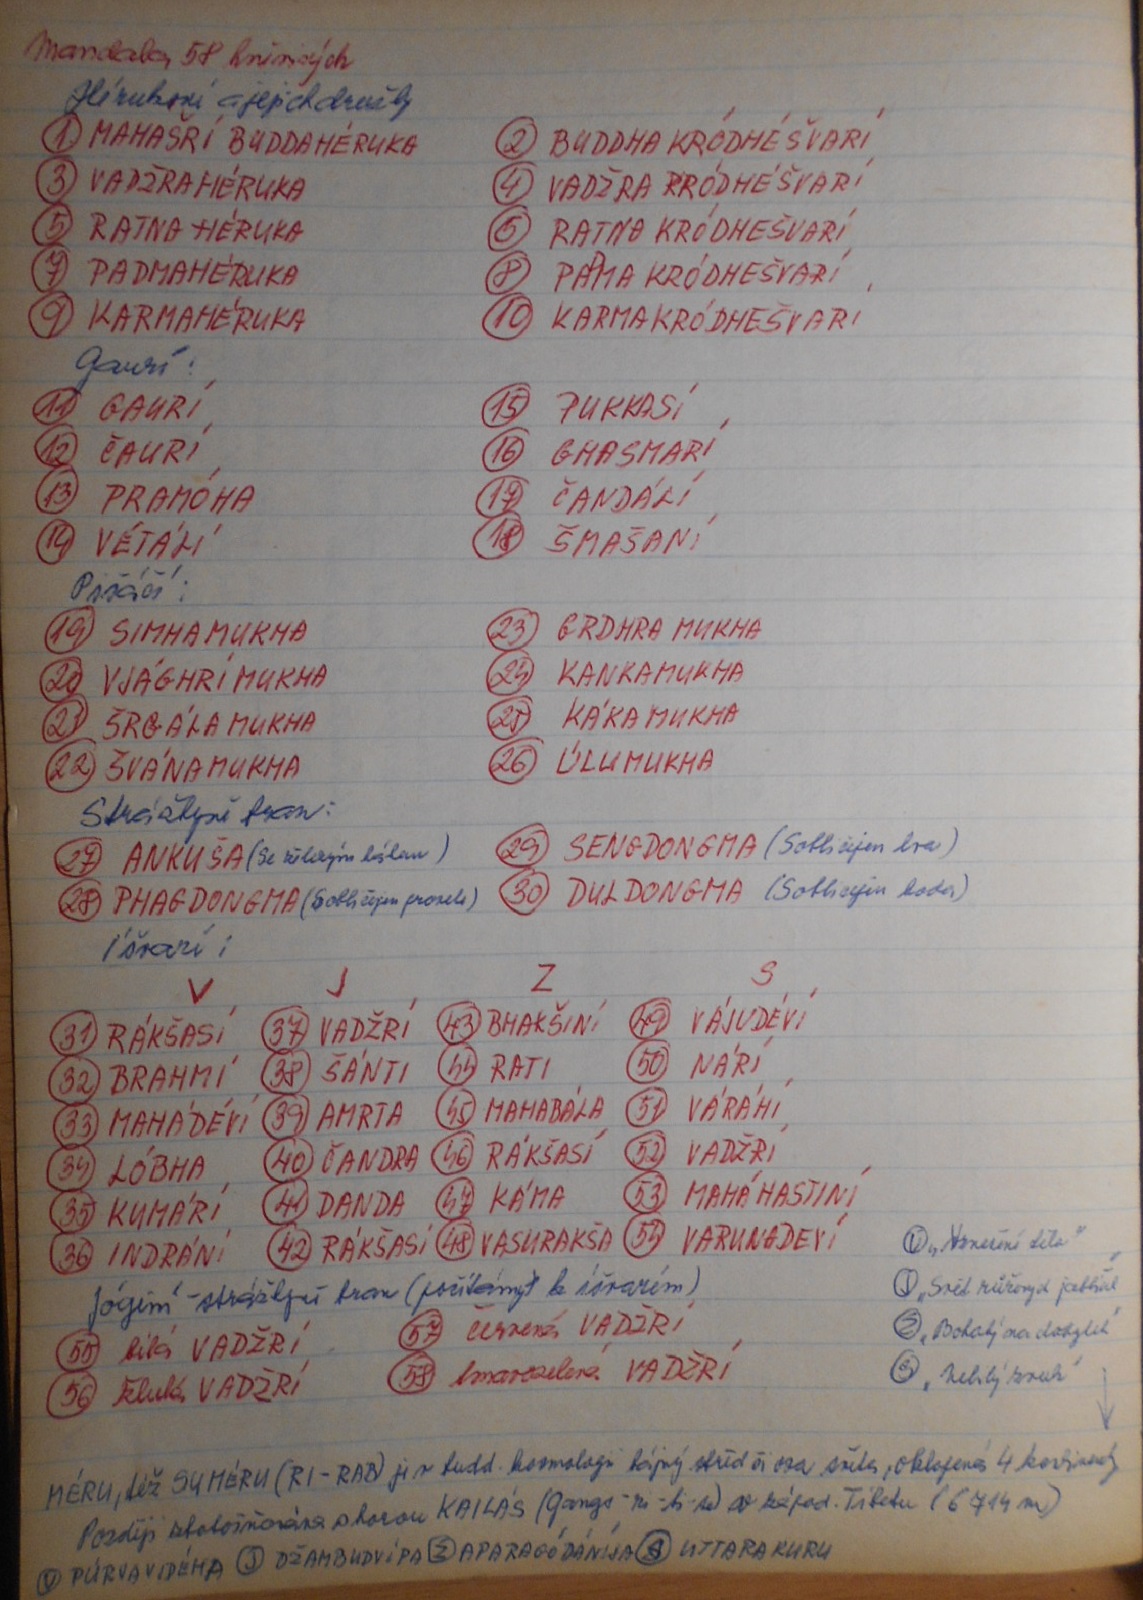 Mandala 58 hněvivých
Hérukové a jejich družky
① MAHAŠRÍ BUDDAHÉRUKA ② BUDDHA KRÓDHÉŠVARÍ
③ VADŽRAHÉRUKA ④ VADŽRA KRÓDHÉŠVARÍ
⑤ RATNA HÉRUKA ⑥ RATNA KRÓDHEŠVARÍ
⑦ PADMAHÉRUKA ⑧ PADMA KRÓDHEŠVARÍ
⑨ KARMAHÉRUKA ⑩ KARMAKRÓDHEŠVARI
Gaurí:
⑪ GAURÍ ⑮ PUKKASÍ
⑫ ČAURÍ ⑯ GHASMARÍ
⑬ PRAMÓHA ⑰ ČANDÁLÍ
⑭ VÉTÁLÍ ⑱ ŠMAŠANÍ
Pišáčí:
⑲ SIMHAMUKHA ㉓ GRDHRA MUKHA
⑳ VJÁGHRÍ MUKHA ㉔ KANKAMUKHA
㉑ ŠRGÁLA MUKHA ㉕ KÁKA MUKHA
㉒ ŠVÁNAMUKHA ㉖ ÚLUMUKHA
Strážkyně bran:
㉗ ANKUŠA (Se ) ㉙ SENGDONGMA (S obličejem lva)
㉘ PHAGDONGMA (S obličejem prasete) ㉚ DULDONGMA (S obličejem hada)
Íšvarí:
V J Z S
㉛ RÁKŠASÍ ㊲ VADŽRÍ ㊸ BHAKŠINÍ ㊾ VÁJUDÉVÍ
㉜ BRAHMÍ ㊳ ŠÁNTI ㊹ RATI ㊿ NÁRÍ
㉝ MAHÁDÉVÍ ㊴ AMRTA ㊺ MAHABÁLA 51 VÁRÁHÍ
㉞ LÓBHA ㊵ ČANDRA ㊻ RÁKŠASÍ 52 VADŽRÍ
㉟ KUMÁRÍ ㊶ DANDA ㊼ KÁMA 53 MAHÁHASTINÍ
㊱ INDRÁNÍ ㊷ RÁKŠASÍ ㊽ VASURAKŠA 54 VARUNADEVÍ
Jógíní - strážkyně bran (počítány k íšvarím)
55 bílá VADŽRÍ 57 červená VADŽRÍ
56 žlutá VADŽRÍ 58 tmavozelená VADŽRÍ
Ⓥ „Vznešené tělo"
Ⓙ „Svět růžových jabloní"
Ⓩ „Bohatý na dobytek"
Ⓢ „Nelibý zvuk"
MÉRU, též SUMÉRU (RI-RAB) je v budd. kosmologii bájný střed či osa světa, obklopená 4 kontinenty
Později ztotožňována s horou KAILÁS (Gangs-ri-ti-se) v západ. Tibetu (6714 m)
Ⓥ PÚRVAVIDÉHA Ⓙ DŽAMBUDVÍPA Ⓩ APARAGÓDÁNÍJA Ⓢ UTTARAKURU